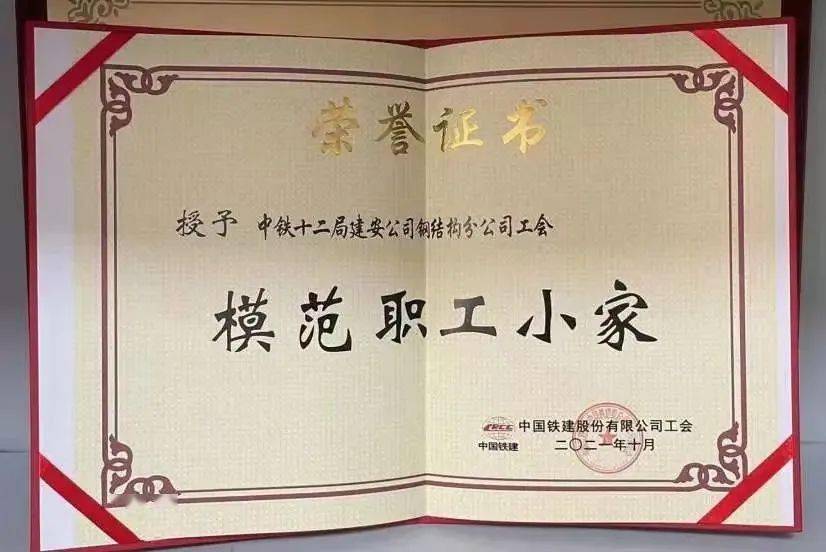 荣誉证书
授予 中铁十二局建安公司钢结构分公司工会
模范职工小家
CRCC 中国铁建股份有限公司工会
中国铁建 二〇二一年十月